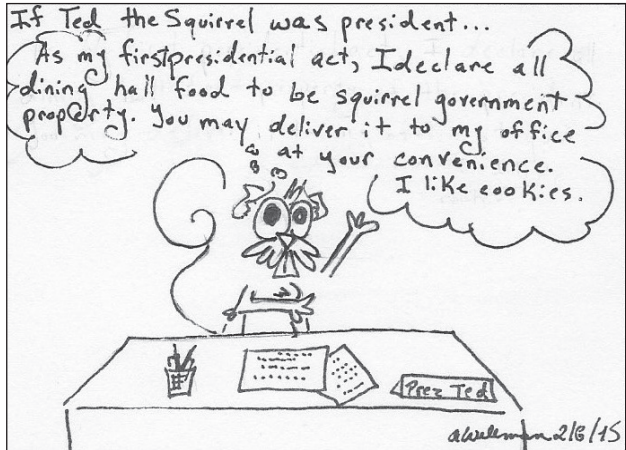 If Ted the Squirrel was president...
As my first presidential act, I declare all
dining hall food to be squirrel government
property. You may deliver it to my office
at your convenience.
I like cookies.
Prez Ted
2/6/15